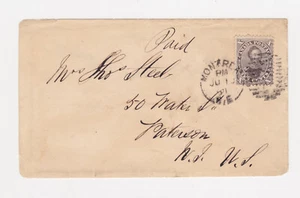 Paid
MONTREAL
PM
JU 1
Mrs Thos Steel
50 Water St
Paterson
N.J. U.S.